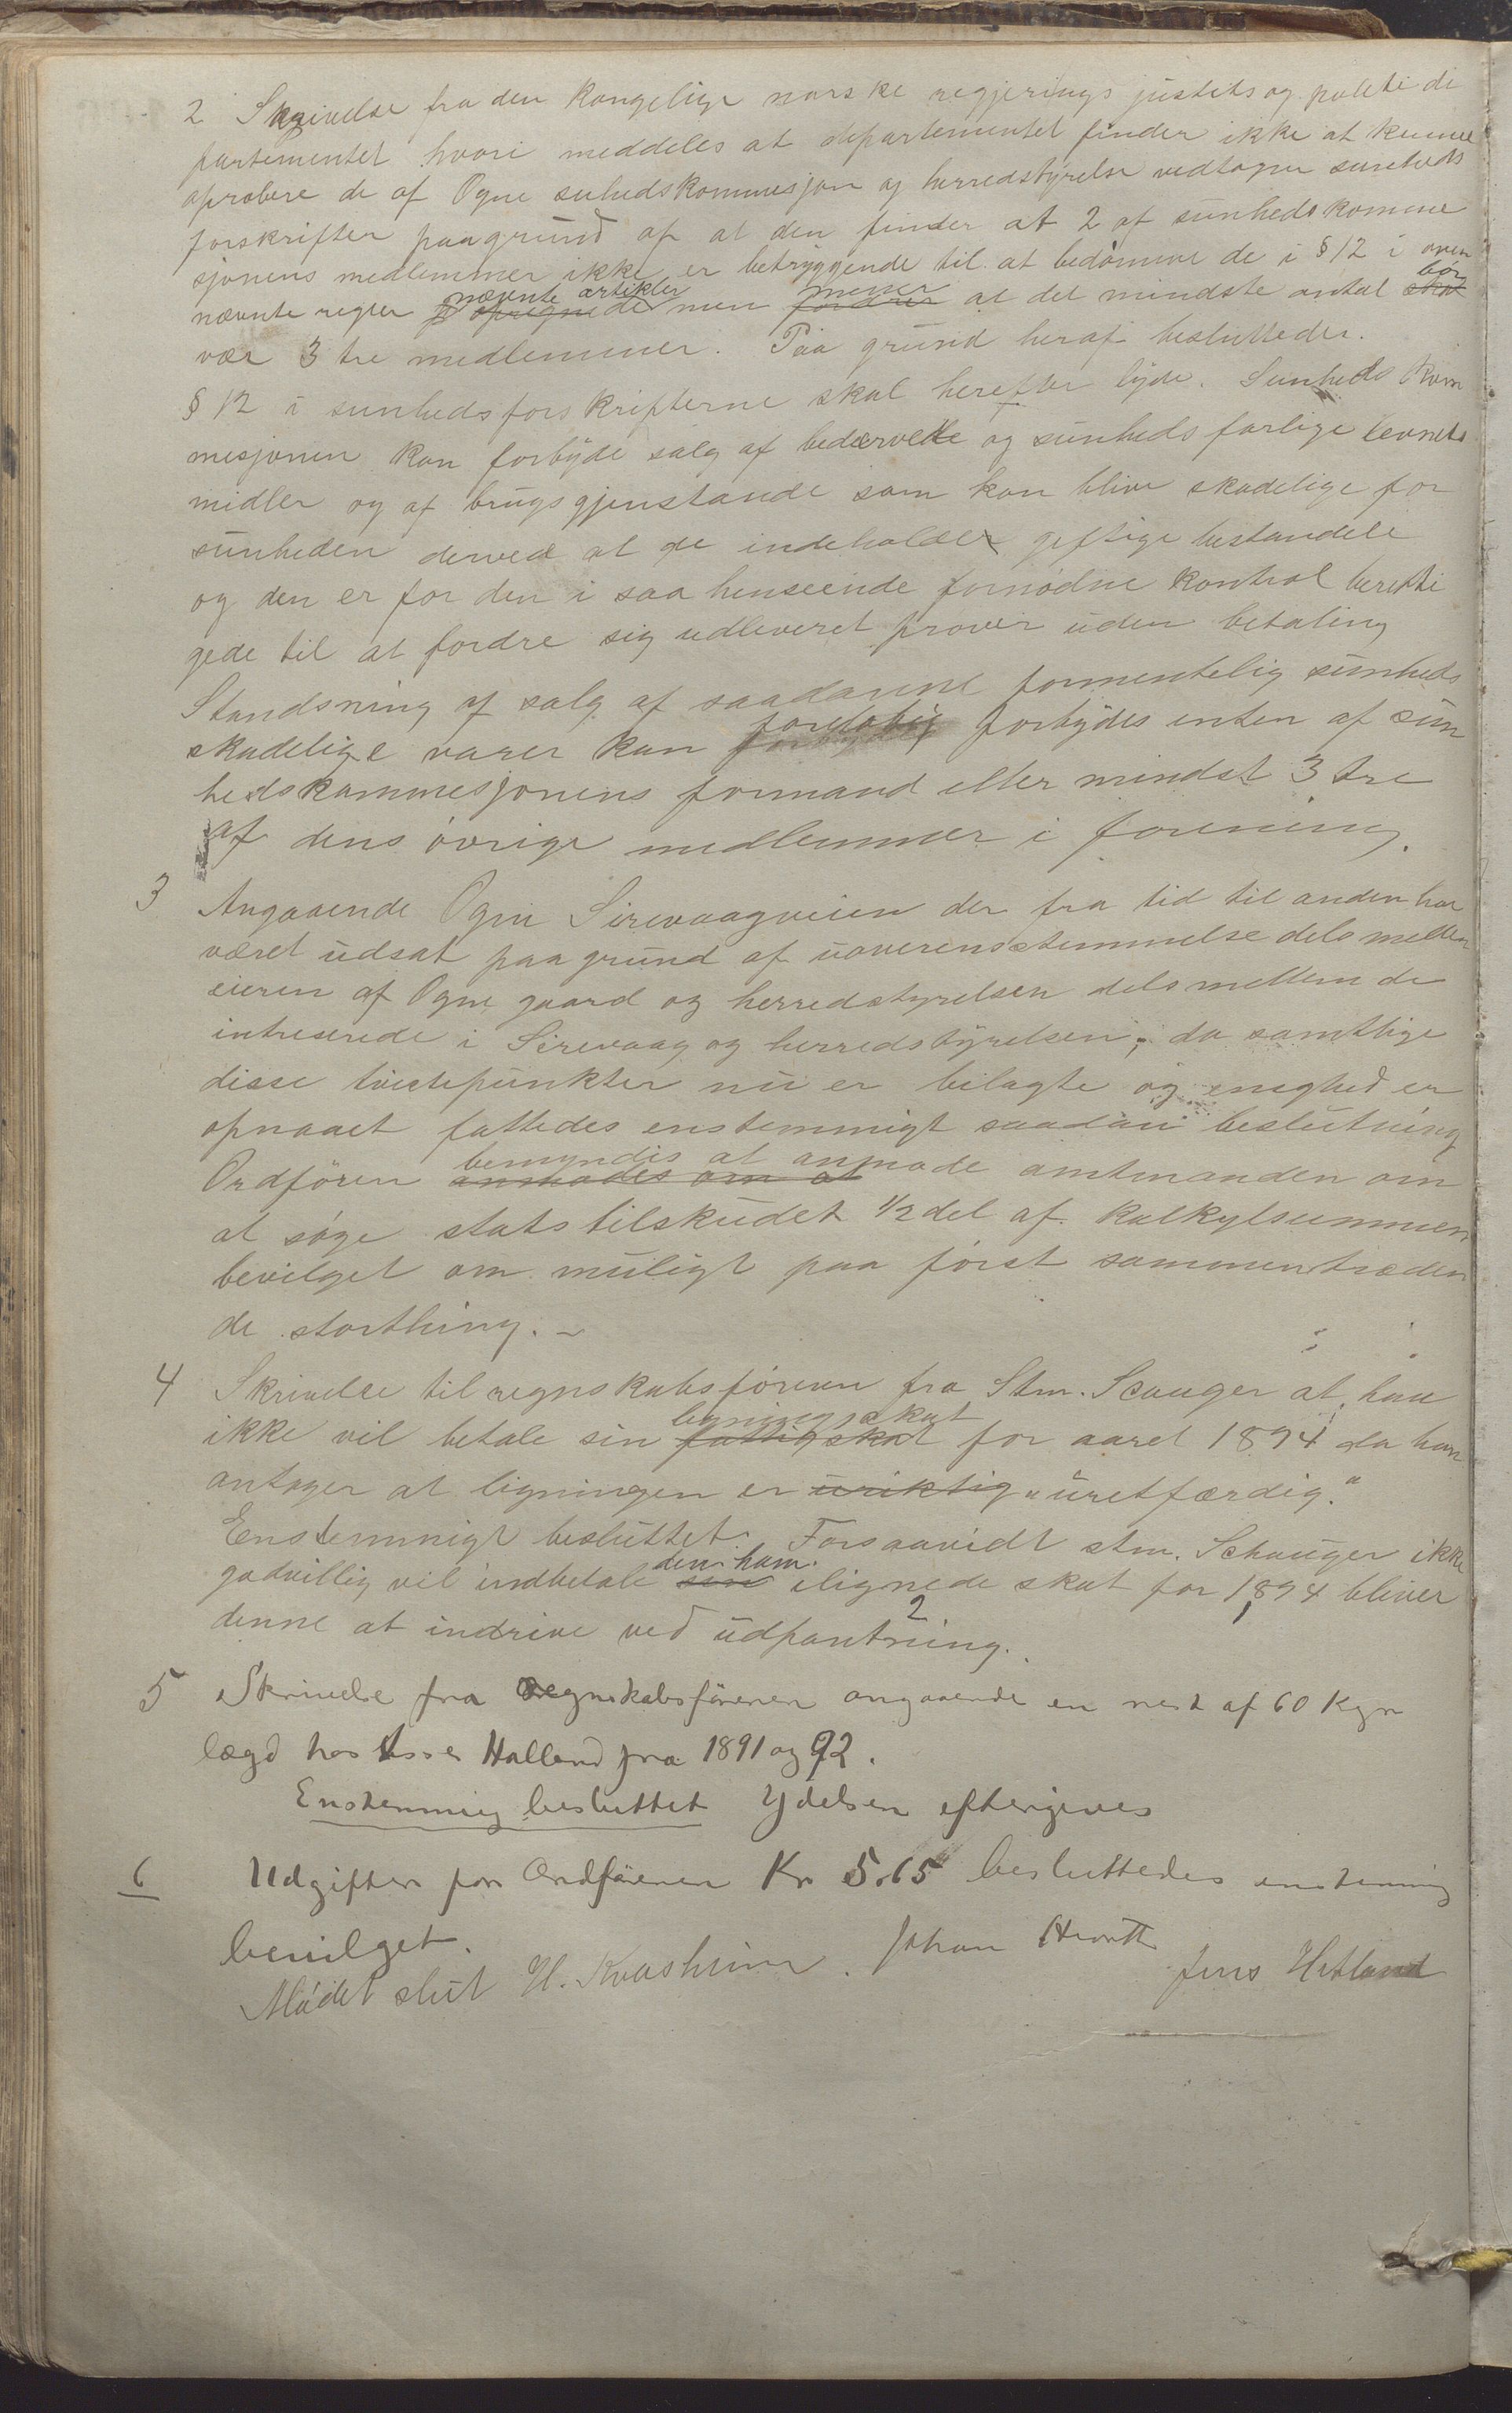 2 Skrivelse fra den Kongelige norske regjerings justits og politi de
partementet hvori meddeles at departementet finder ikke at kunne
aprobere de af Ogne suhedskommesjon og herredstyrelse vedtagne sunheds
forskrifter paagrund af at den finder at 2 af sunhedskomme
sjonens medlemmer ikke er betryggende til at bedømme de i § 12 i oven
nævnte regler opregnede nævnte artikler men fordrer mener at det mindste antal skal bør
vær 3 tre medlemmer. Paa grund heraf besluttedes.
§ 12 i sunhedsforskrifterne skal herefter lyde. Sunheds Kom
mesjonen kan forbyde salg af bedærvede og sunheds farlige levnets
midler og af brugsgjenstande som kan blive skadelige for
sunheden derved at de indeholder giftige bestandele
og den er for den i saa henseende fornødne kontrol beretti
gede til at fordre sig udleveret prøver uden betaling
Standsning af salg af saadanne formentelig sunheds
skadelige varer kan foreløbig forbydes enten af sun
hedskommesjonens formand eller mindst 3 tre
af dens øvrige medlemmer i forening.
3 Angaaende Ogne Sirevaagveien der fra tid til anden har
været udsat paa grund af uoverensstemmelse dels mellem
eieren af Ogne gaard og herredstyrelsen dels mellem de
intreserede i Sirevaag og herredstyrelsen; da samtlige
disse tvistepunkter nu er bilagte og enighed er
opnaaet fattedes enstemmigt saadan beslutning
Ordføren anmodes om at bemyndis at anmode amtmanden om
at søge statstilskudet 1/2 del af Kalkylsummen
bevilget om muligt paa først sammentræden
de storthing. –
4 Skrivelse til regnskabsføreren fra Stm. Scauger at han
ikke vil betale sin fattigskat ligningsskat for aaret 1894 da han
antager at ligningen er uriktig „uretfærdig."
Enstemmigt besluttet. Forsaavidt stm. Schauger ikke
godvillig vil indbetale sin den ham ilignede skat for 1894 bliver
denne at indrive ved udpantning.
5 Skrivelse fra Regnskabsføreren angaaende en rest af 60 Kgr
lægd hos Asser Halland fra 1891 og 92.
Enstemmig besluttet Ydelsen eftergives
6 Udgifter for Ordføreren Kr 5.65 besluttedes enstemmig
bevilget.
Mødet slut H. Kvashiem. Johan Jens Hetland